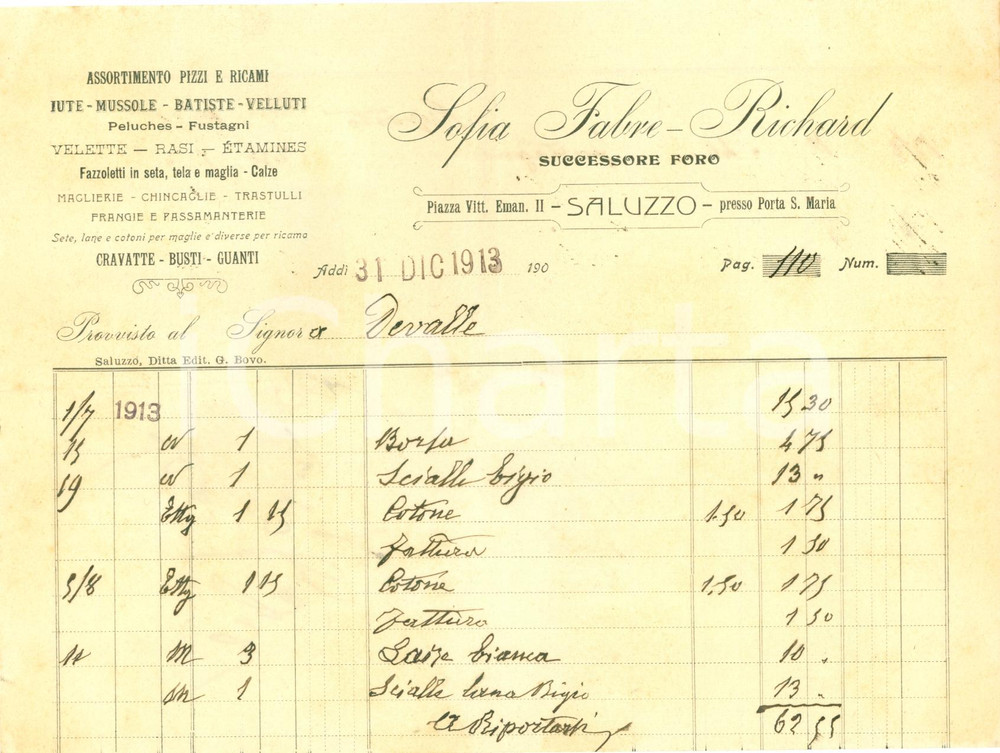 ASSORTIMENTO PIZZI E RICAMI
IUTE - MUSSOLE - BATISTE - VELLUTI
Peluches - Fustagni
VELETTE — RASI — ÉTAMINES
Fazzoletti in seta, tela e maglia - Calze
MAGLIERIE - CHINCAGLIE - TRASTULLI
FRANGIE E PASSAMANTERIE
Sete, lane e cotoni per maglie e diverse per ricamo
CRAVATTE - BUSTI - GUANTI
Sofia Fabre-Richard
SUCCESSORE FORO
Piazza Vitt. Eman. II - SALUZZO - presso Porta S. Maria
Addì 31 DIC 1913 190
Pag. 110 Num.
Provvisto al Signora Devalle
Saluzzo, Ditta Edit. G. Bovo.
iCharta
1/7 1913 15 30
15 N 1 Borsa 4 75
19 N 1 Scialle bigio 13 "
Ettg 1 15 Cotone 1.50 1 75
fattura 1 50
5/8 Ettg 1 15 Cotone 1,50 1 75
fattura 1 50
M 3 bianca 10 .
M 1 Scialle lana Bigio 13 "
A Riportarsi 62 55